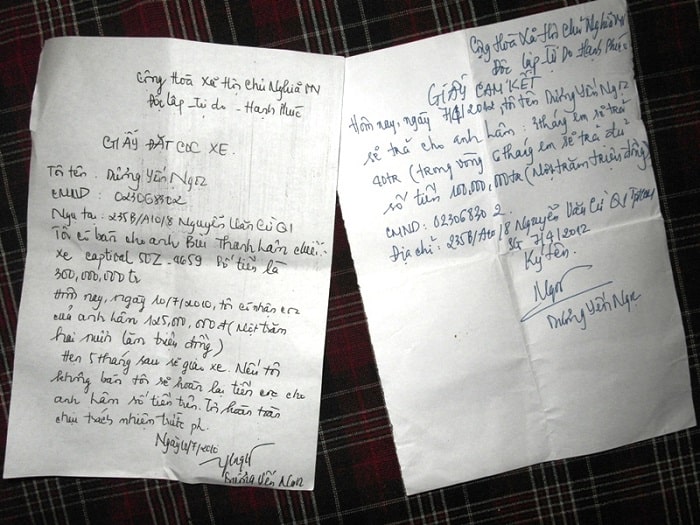 Cộng Hoà Xã Hội Chủ Nghĩa VN
Độc Lập - Tự do - Hạnh Phúc
GIẤY ĐẶT CỌC XE.
Tôi tên: Dương Yến Ngọc
CMND: 023068302
Ngụ tại: 235B/A10/8 Nguyễn Văn Cừ Q1
Tôi có bán cho anh Bùi Thanh Hân chiếc
xe captival 50Z-4659 số tiền là
300,000,000 tr
Hôm nay, ngày 10/7/2010, tôi có nhận cọc
của anh Hân 125,000,000đ (Một trăm
hai mươi lăm triệu đồng)
Hẹn 5 tháng sau sẽ giao xe. Nếu tôi
không bán tôi sẽ hoàn lại tiền cọc cho
anh Hân số tiền trên. Tôi hoàn toàn
chịu trách nhiệm trước pl.
Ngày 10/7/2010
Dương Yến Ngọc
Cộng Hoà Xã Hội Chủ Nghĩa VN
Độc Lập - Tự Do - Hạnh Phúc
GIẤY CAM KẾT
Hôm nay, ngày 7/4/2012 tôi tên Dương Yến Ngọc
sẽ trả cho anh Hân: 3 tháng em sẽ trả
40tr (trong vòng 6 tháng em sẽ trả đủ
số tiền 100,000,000tr (Một trăm triệu đồng)
CMND: 023068302
Địa chỉ: 235B/A10/8 Nguyễn Văn Cừ Q1 TpHCM
SG 7/4/2012
Ký tên
Ngọc
Dương Yến Ngọc